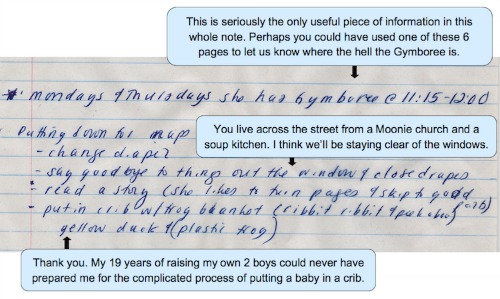 This is seriously the only useful piece of information in this
whole note. Perhaps you could have used one of these 6
pages to let us know where the hell the Gymboree is.
* mondays & Thursdays she has Gymboree @ 11:15-12:00
Putting down for nap
You live across the street from a Moonie church and a
soup kitchen. I think we'll be staying clear of the windows.
- change diaper
- say goodbye to things out the window & close drapes
- read a story (she likes to turn pages & skip to good
- put in crib w/ frog blanket (ribbit ribbit &
yellow duck & (plastic frog)
Thank you. My 19 years of raising my own 2 boys could never have
prepared me for the complicated process of putting a baby in a crib.